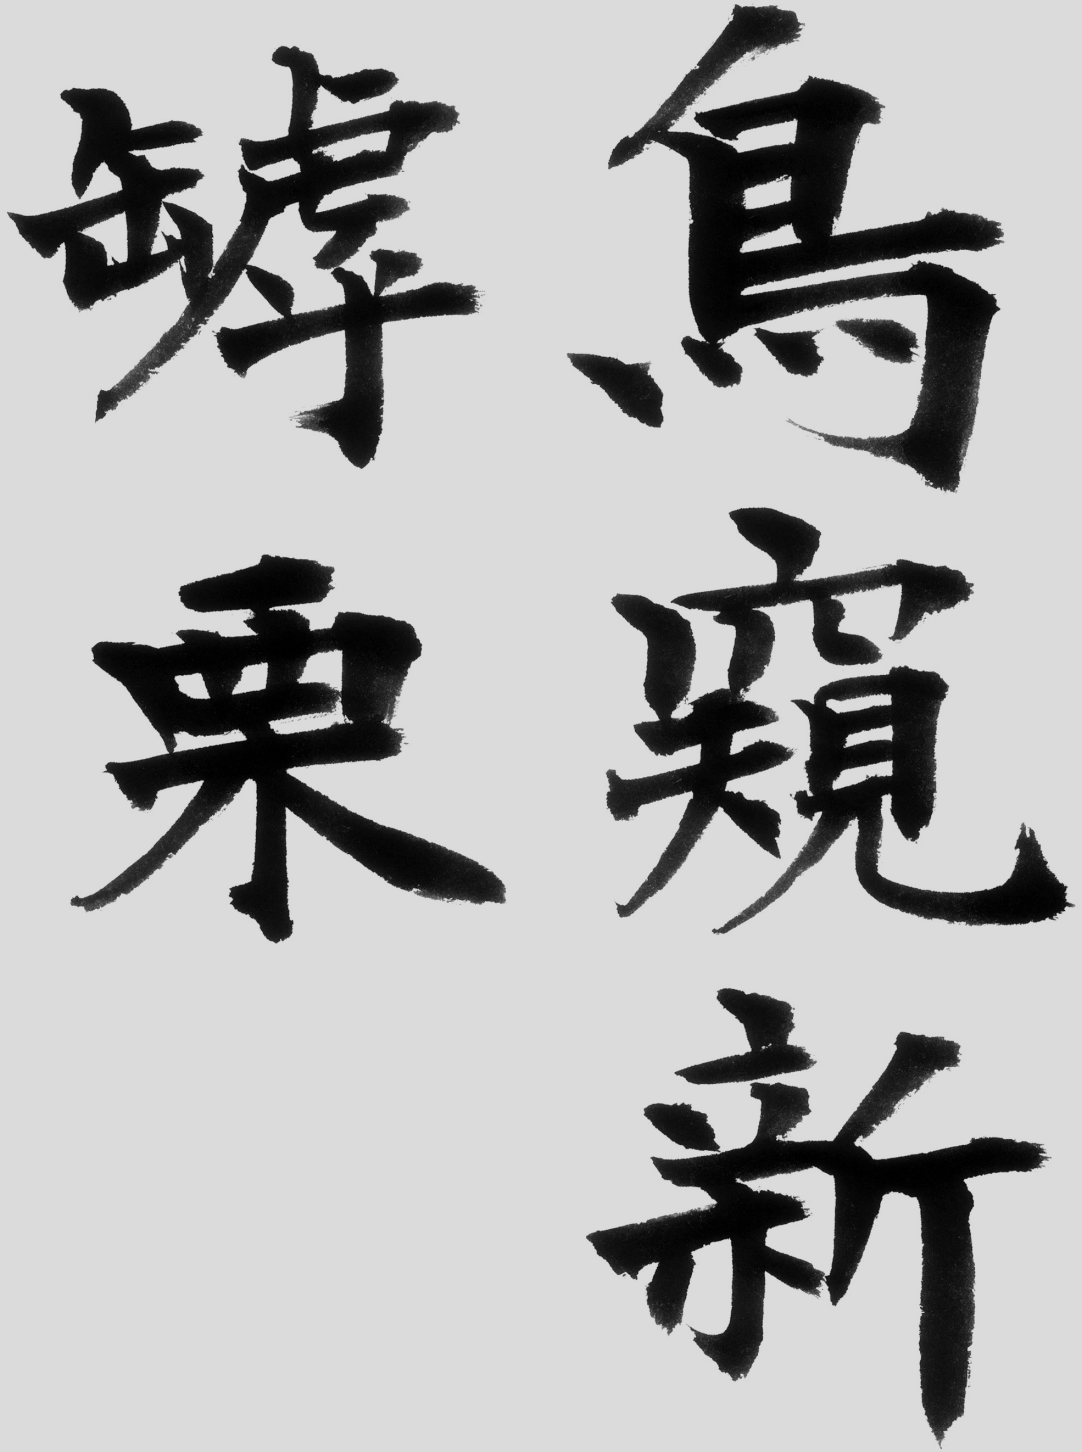 鳥窺新
罅栗